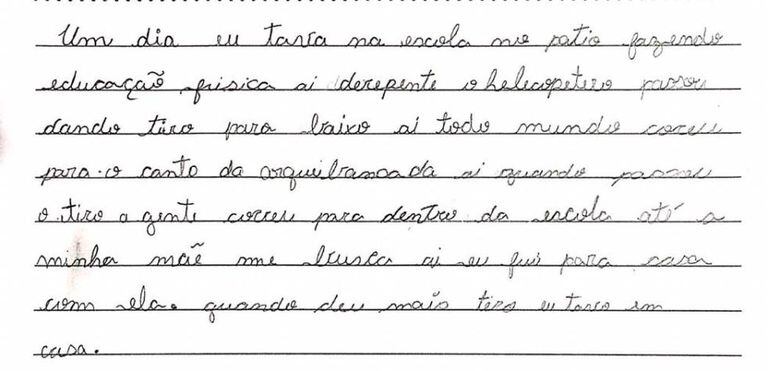 Um dia eu tava na escola no patio fazendo
educação fisica ai derepente o helecopetero passou
dando tiro para baixo ai todo mundo correu
para o canto da arqueibancada ai quando passou
o tiro a gente correu para dentro da escola até a
minha mãe me busca ai eu fui para casa
com ela. quando deu mais tiro eu tava em
casa.